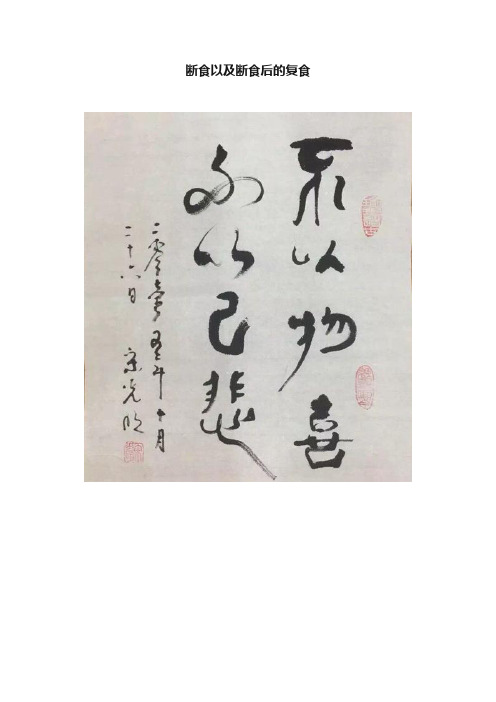 断食以及断食后的复食
不以物喜
不以己悲
二零 年十月
二十六日 宋光明